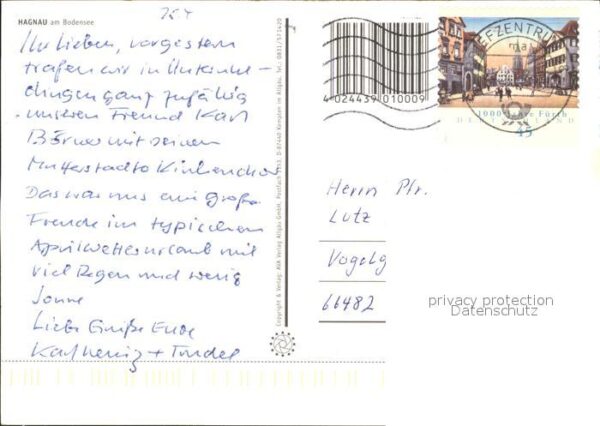 HAGNAU am Bodensee
25.4
Ihr Lieben, vorgestern
trafen wir in Unteruhl-
dingen ganz zufällig
unseren Freund Karl
Börner mit seinem
Mutterstadter Kirchenchor
Das war uns eine große
Freude im typischen
Aprilwetterurlaub mit
viel Regen und wenig
Sonne
Liebe Grüße Eure
Karlheinz + Trudel
Copyright & Verlag: AVA Verlag Allgäu GmbH, Postfach 1153, D-87440 Kempten im Allgäu, Tel.: 0831/571420
4 024439 010009
EFZENTRUM
1000 Jahre Fürth
DEUTSCHLAND
45
Herrn Pfr.
Lutz
Vogelg
66482
privacy protection
Datenschutz